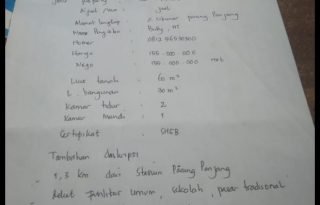 : Jual
Alamat lengkap : Parung Panjang
Nomor : 0812
Harga : 155.000.000
Nego : 150.000.000 net
Luas tanah : 60 m²
L. bangunan : 30 m²
Kamar tidur : 2
Kamar Mandi : 1
Sertifikat : SHGB
Tambahan deskripsi
1,3 km dari Stasiun Parung Panjang
dekat fasilitas umum, sekolah, pasar tradisional